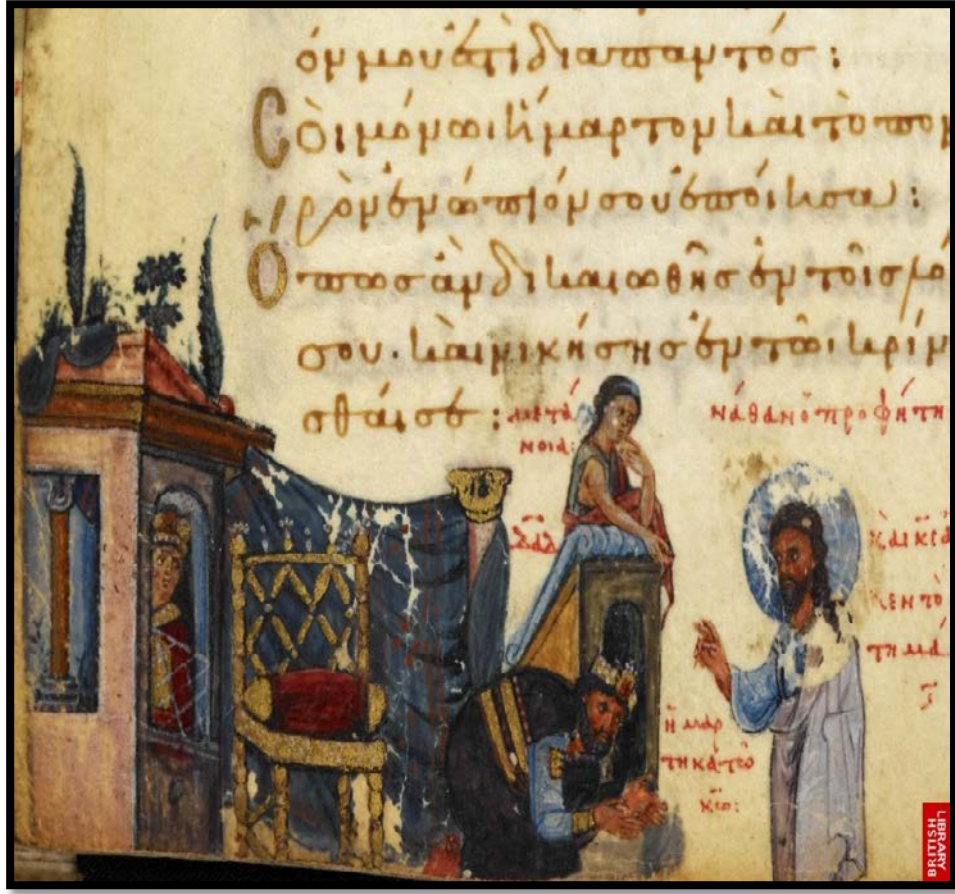 όν μου ἐστὶ διαπαντός:
Σοὶ μόνωι ἥμαρτον καὶ τὸ πον
ρὸν ἐνώπιόν σου ἐποίησα:
Ὅπως ἂν δικαιωθῆς ἐν τοῖς λό
σου· καὶ νικήσης ἐν τῶι κρίν
σθαί σε:
μετά
νοια:
νάθαν ὁ προφήτη
Δαδ
καὶ κς ἀ
εν τὸ
τημά
ἡμάρ
τηκα τῶ
κω:
BRITISH
LIBRARY